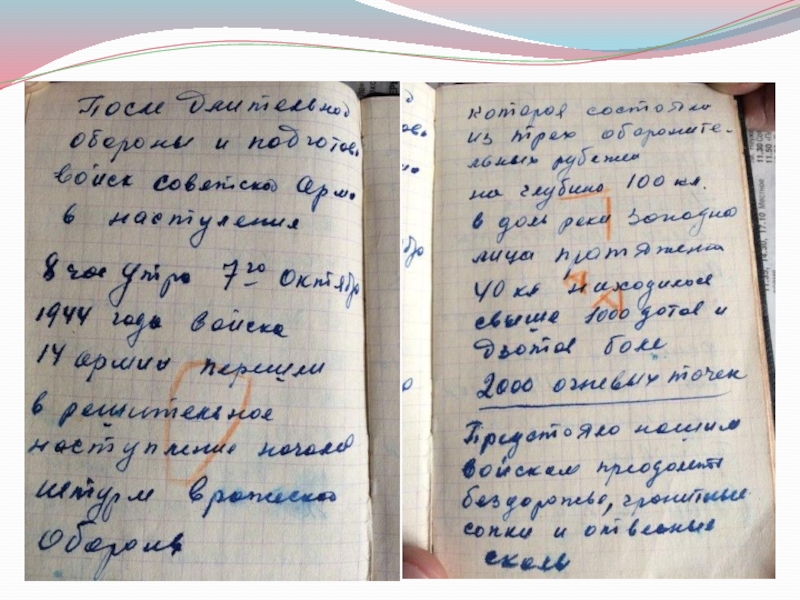 После длительной
обороны и подготов
войск советской Арми
в наступления
8 час утра 7го Октября
1944 года войска
14 армии перешли
в решительное
наступление начался
штурм вражеской
Обороны
которая состояла
из трех обороните-
льных рубежей
на глубино 100 км.
в доль реки Западно
лица протяжен
40 км находилося
свыше 1000 дотов и
Дзотов боле
2000 огневых точек
Предстояло нашим
войскам преодолеть
бездорожье, гранитные
сопки и отвесные
скалы